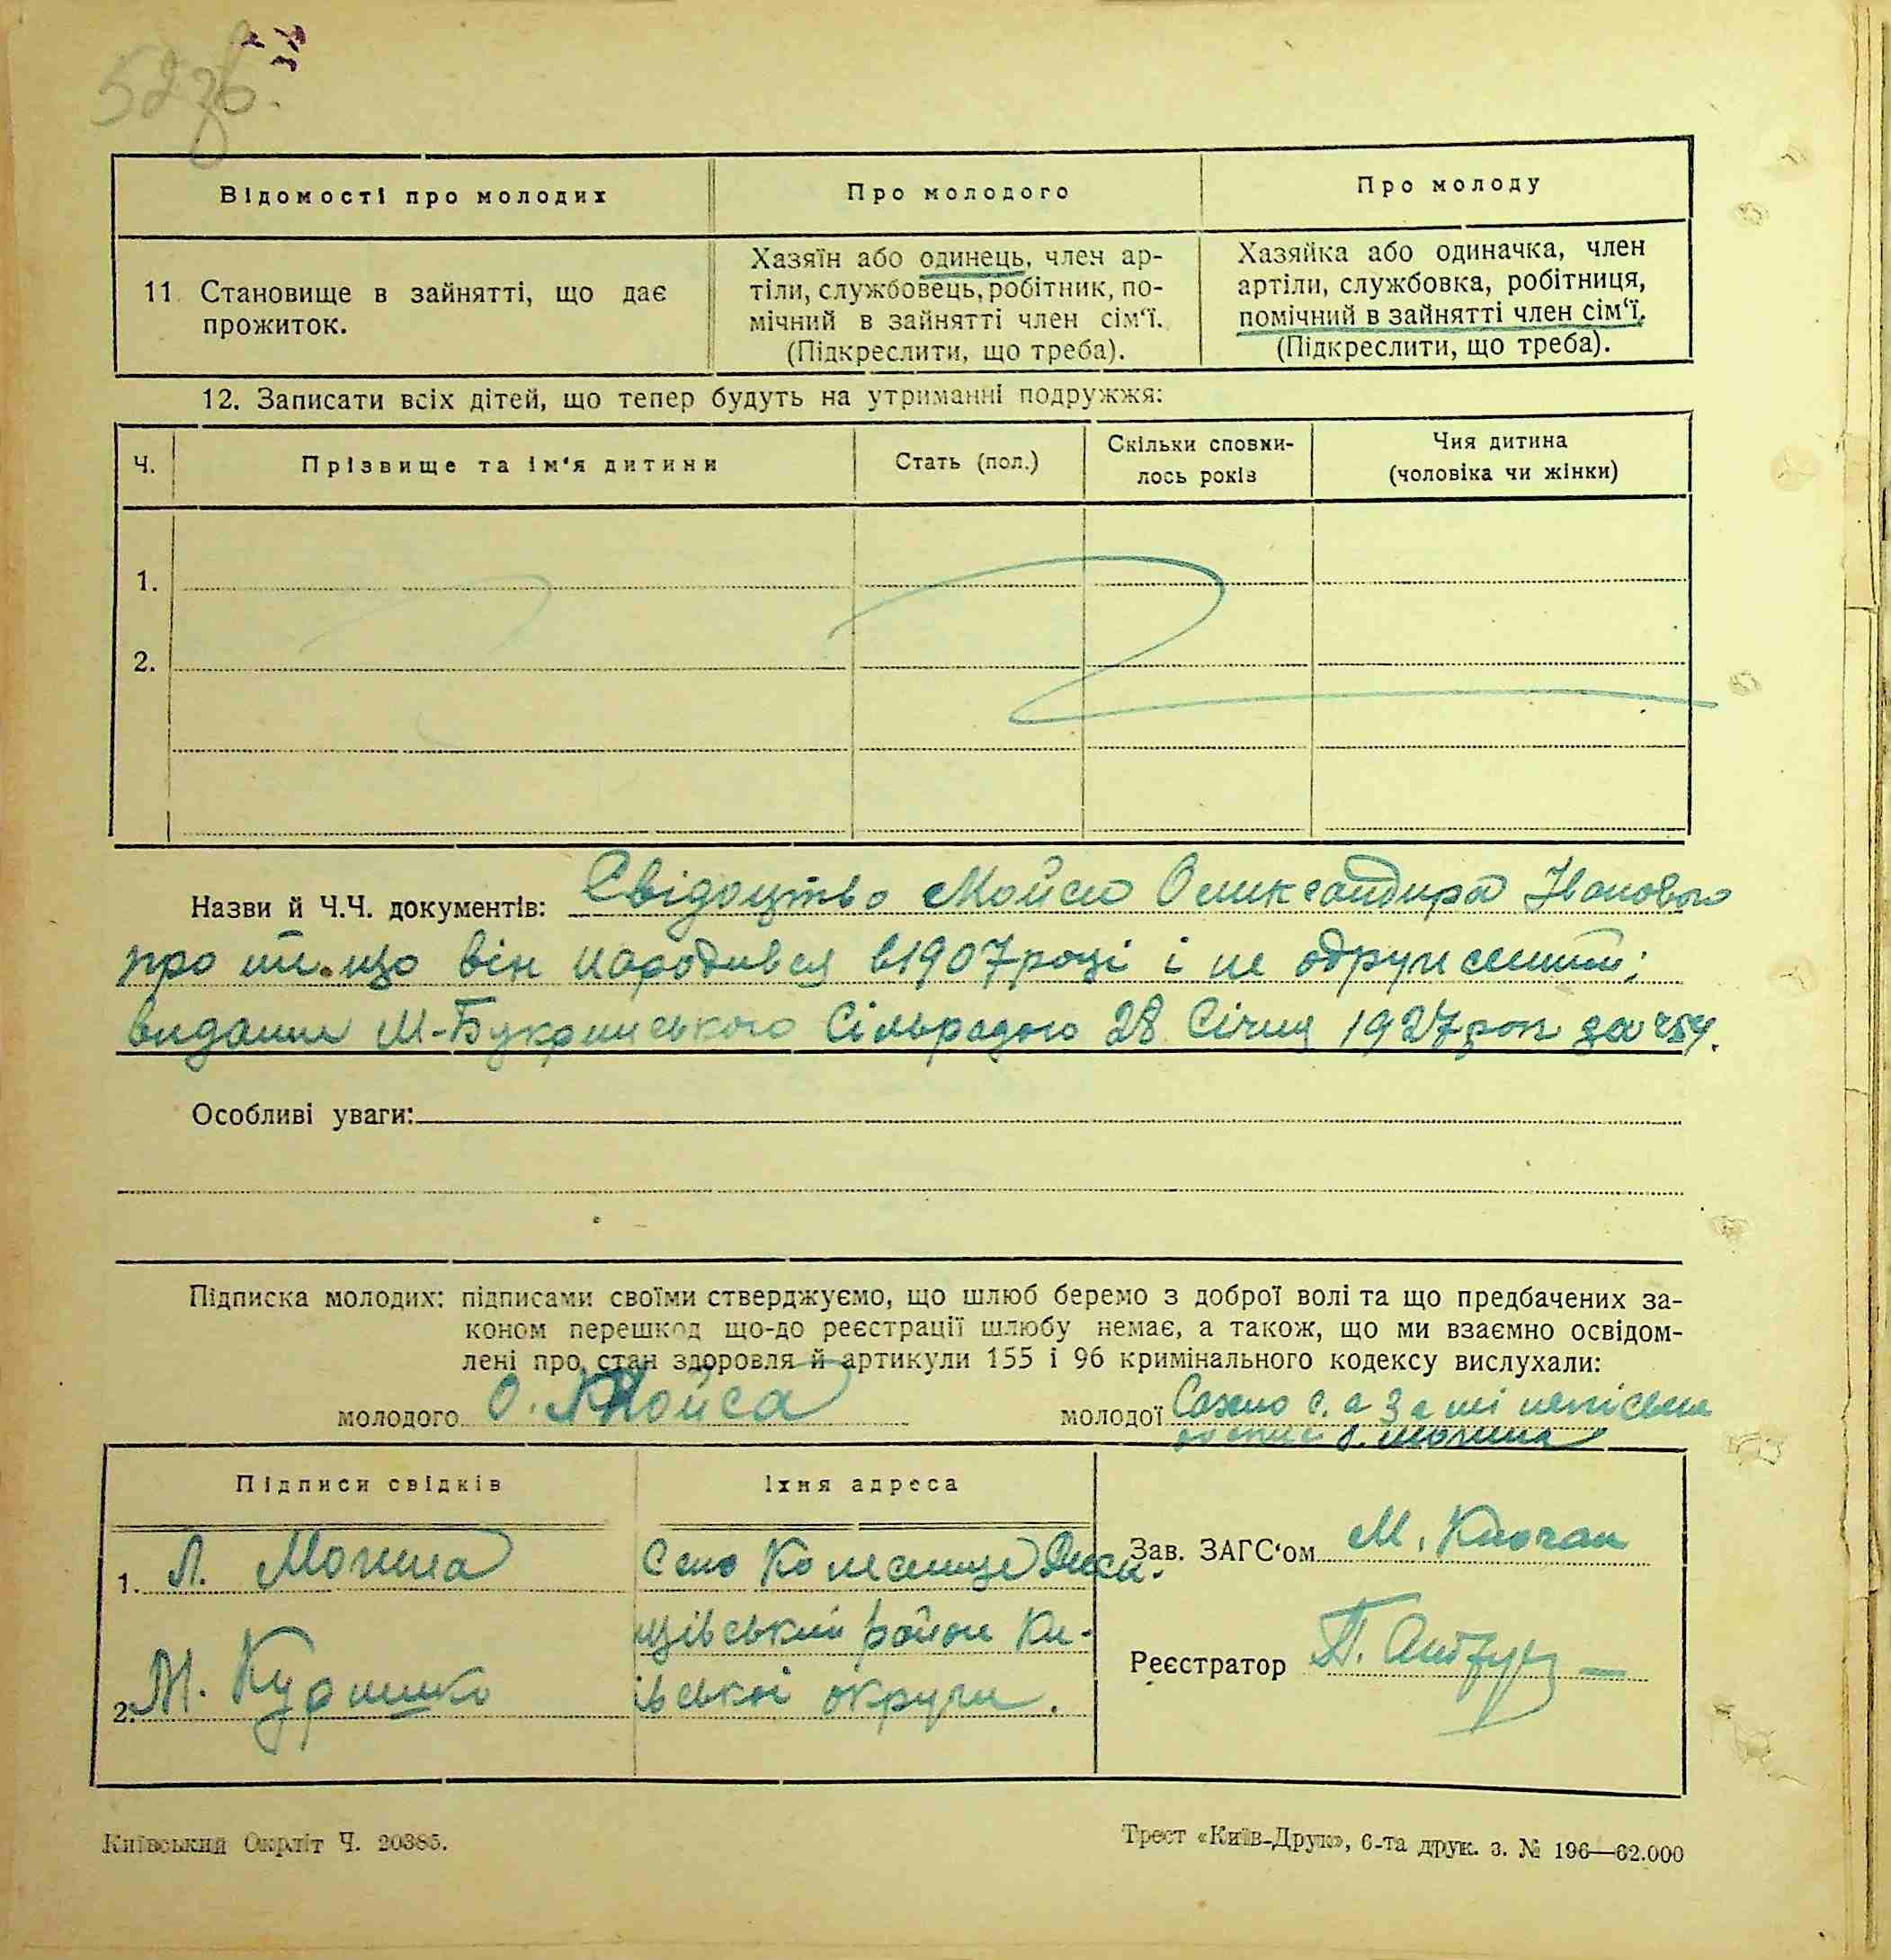 52 зв.
Відомості про молодих
Про молодого
Про молоду
11. Становище в зайнятті, що дає
прожиток.
Хазяїн або одинець, член ар-
тіли, службовець, робітник, по-
мічний в зайнятті член сім‘ї.
(Підкреслити, що треба).
Хазяйка або одиначка, член
артіли, службовка, робітниця,
помічний в зайнятті член сім‘ї.
(Підкреслити, що треба).
12. Записати всіх дітей, що тепер будуть на утриманні подружжя:
Ч.
Прізвище та ім‘я дитини
Стать (пол.)
Скільки сповни-
лось років
Чия дитина
(чоловіка чи жінки)
1.
2.
Назви й Ч.Ч. документів: Свідоцтво Мойси Олександра Івановича
про те що він народився в 1907 році і не одружений;
видание М-Букринського Сільрадою 28 Січня 1927 рок за
Особливі уваги:
Підписка молодих: підписами своїми стверджуємо, що шлюб беремо з доброї волі та що предбачених за-
коном перешкод що-до реєстрації шлюбу немає, а також, що ми взаємно освідом-
лені про стан здоровля й артикули 155 і 96 кримінального кодексу вислухали:
молодого О. Мойса
молодої
Підписи свідків
Їхня адреса
1. Л. Могила
Село
2. М. Куришко
район Ки-
ївської округи.
Зав. ЗАГС‘ом М. Клочан
Реєстратор П.
Київський Окрліт Ч. 20385.
Трест «Київ-Друк», 6-та друк. з. № 196—62.000